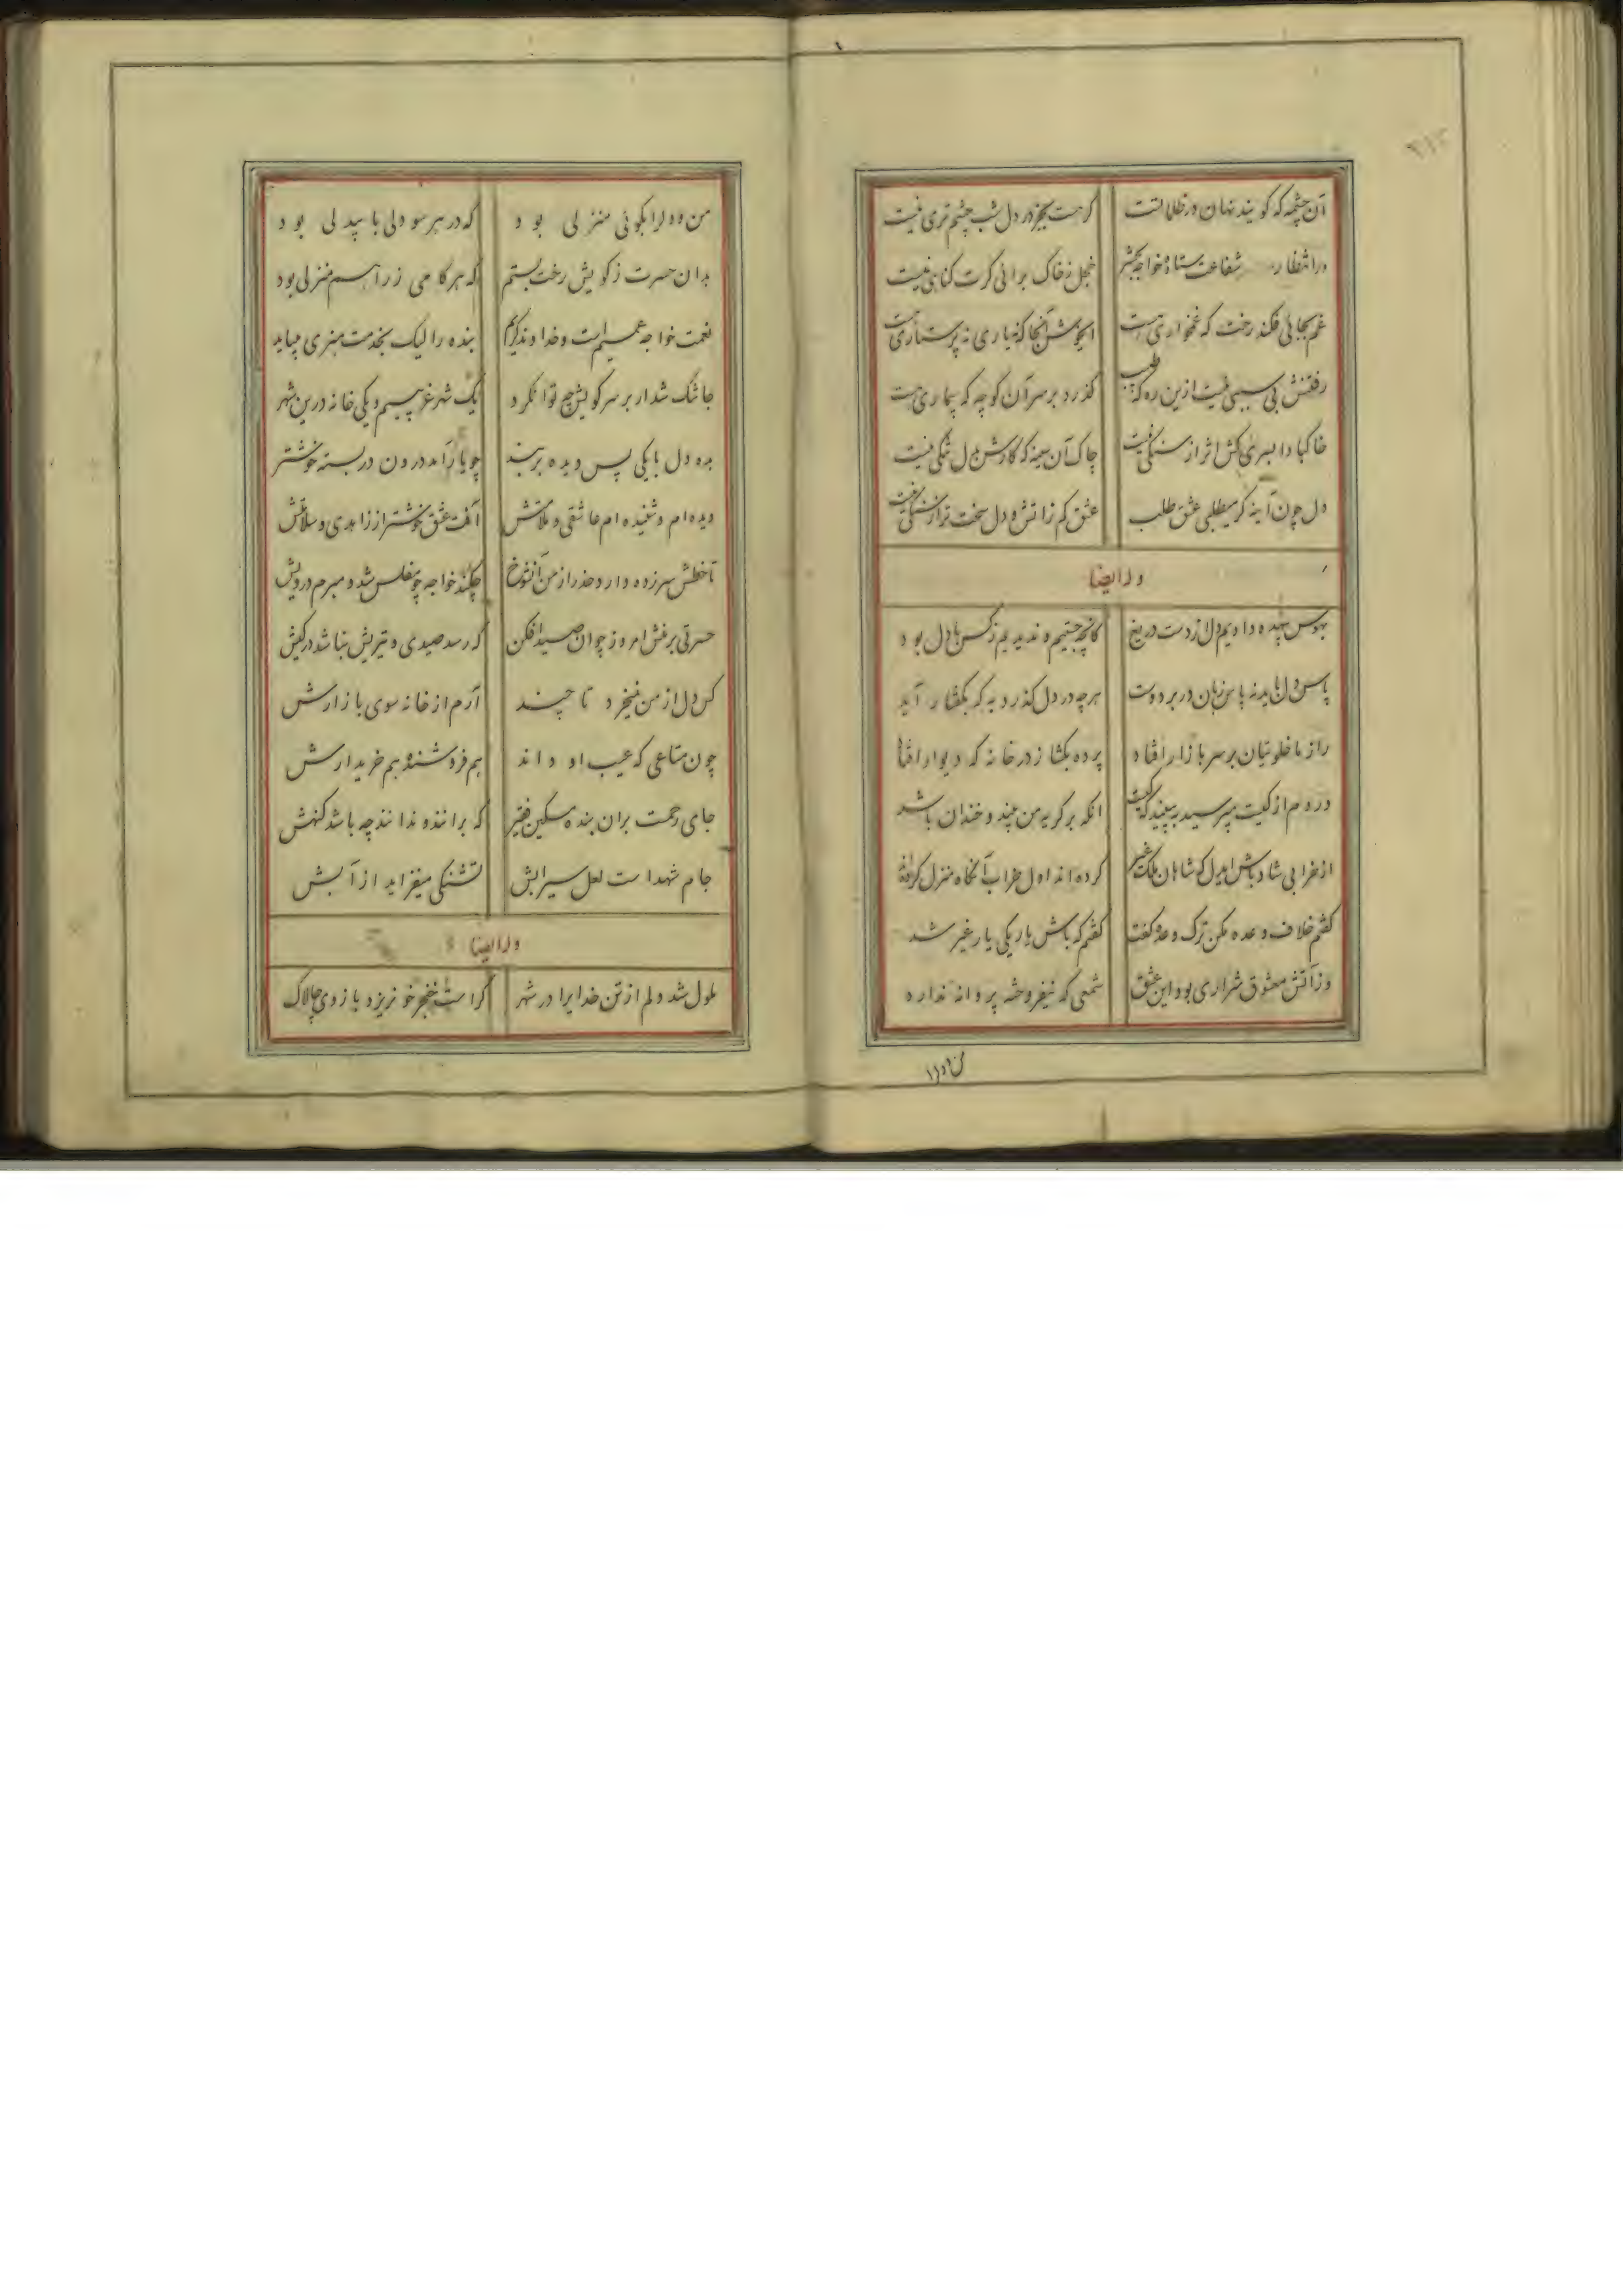 آن چشمه که گویند نهان در ظلماتست گر هست بجز در دل شب چشم تری نیست
در انتظار شفاعت ستاده خواجه بحشر خجل ز خاک برانی گرت گناهی نیست
غم بجائی فکند رخت که غمخواری هست ای خوش آنجا که نه یاری نه پرستاری هست
رفتنش بی سببی نیست ازین ره که طبیب گذرد بر سر آن کوچه که بیماری هست
خاکبادا بسری کش اثر از سنگی نیست چاک آن سینه که کارش بدل تنگی نیست
دل چون آینه گر میطلبی عشق طلب عشق کم ز آتش و دل سخت تر از سنگی نیست
وله ایضا
بهوس بیهده دادیم دل از دست دریغ کانچه جستیم و ندیدیم ز کس با دل بود
پاس دل باید نه پاس زبان در بر دوست هر چه در دل گذرد به که بگفتار آید
راز ما خلوتیان بر سر بازار افتاد پرده بگشا ز در خانه که دیوار افتاد
دردم از کیست مپرسید ببینید که کیست آنکه بر گریه من بیند و خندان باشد
از خرابی شاد باش ایدل که شاهان ملک غیر کرده اند اول خراب آنگاه منزل کرده‌اند
گفتم خلاف وعده مکن ترک وعده گفت گفتم که باش یار یکی یار غیر شد
وز آتش معشوق شراری بود این عشق شمعی که نیفروخته پروانه ندارد
من و دل را
من و دل را بکوئی منزلی بود که در هر سو دلی با بیدلی بود
بدان حسرت ز کویش رخت بستم که هر گامی ز راهم منزلی بود
نعمت خواجه عمیم است و خداوند کریم بنده را لیک بخدمت هنری میباید
جا تنگ شد ار بر سر کویش هیچ توان کرد یک شهر غریبیم و یکی خانه درین شهر
بده دل با یکی پس دیده بربند چو یار آمد درون در بسته خوشتر
دیده ام و شنیده ام عاشقی و ملامتش آفت عشق خوشتر از زاهدی و سلامتش
تا خطش سرزده دارد حذر از من آنشوخ چکند خواجه چو مفلس شد و مبرم درویش
حسرتی برمنش امروز چو آن صید افکن که رسد صیدی و تیریش نباشد در کیش
گر دل از من نمیخرد تا چند آرم از خانه سوی بازارش
چون متاعی که عیب او داند هم فروشنده هم خریدارش
جای رحمت بران بنده مسکین فقیر که برانند و ندانند چه باشد گنهش
جام شهد است لعل سیرابش تشنگی میفزاید از آبش
وله ایضا
ملول شد دلم از تن خدایرا در شهر کراست خنجر خونریز و بازوی چالاک